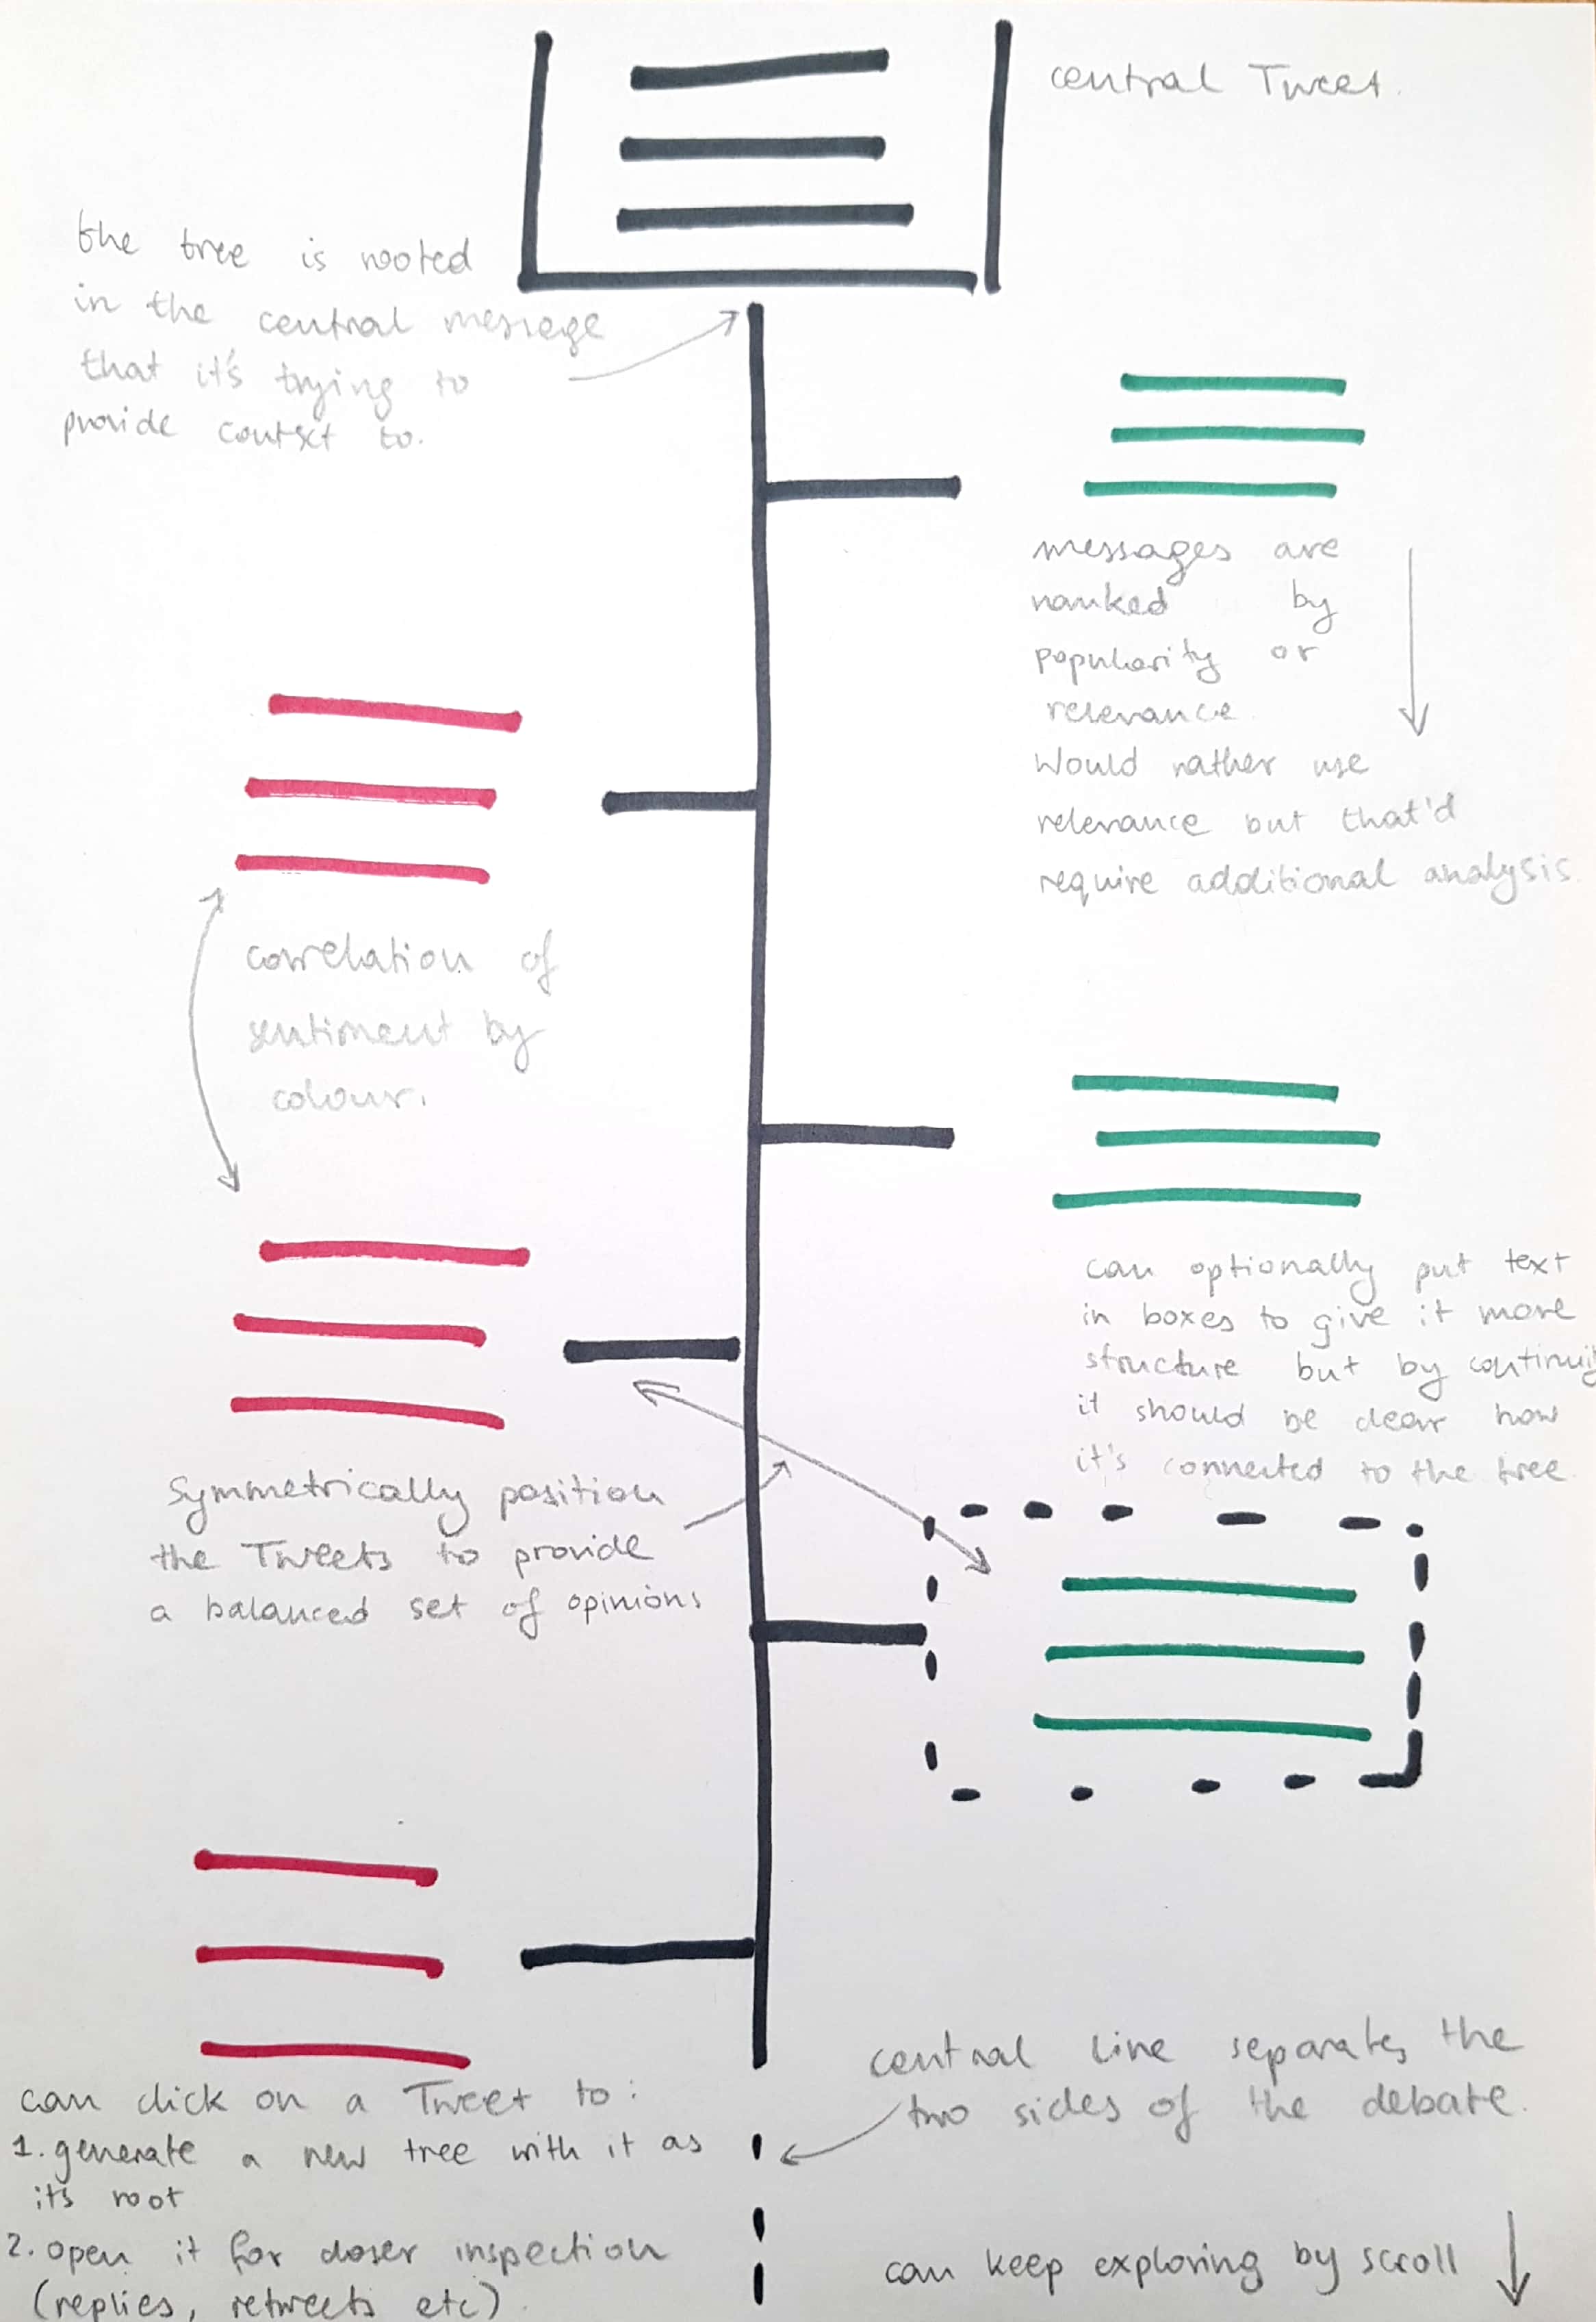 central Tweet.
the tree is rooted
in the central message
that it's trying to
provide context to.
messages are
ranked by
popularity or
relevance
Would rather use
relevance but that'd
require additional analysis
correlation of
sentiment by
colour.
can optionally put text
in boxes to give it more
structure but by continuity
it should be clear how
it's connected to the tree
Symmetrically position
the Tweets to provide
a balanced set of opinions
central line separates the
two sides of the debate.
can click on a Tweet to:
1. generate a new tree with it as
its root
2. open it for closer inspection
(replies, retweets etc)
can keep exploring by scroll